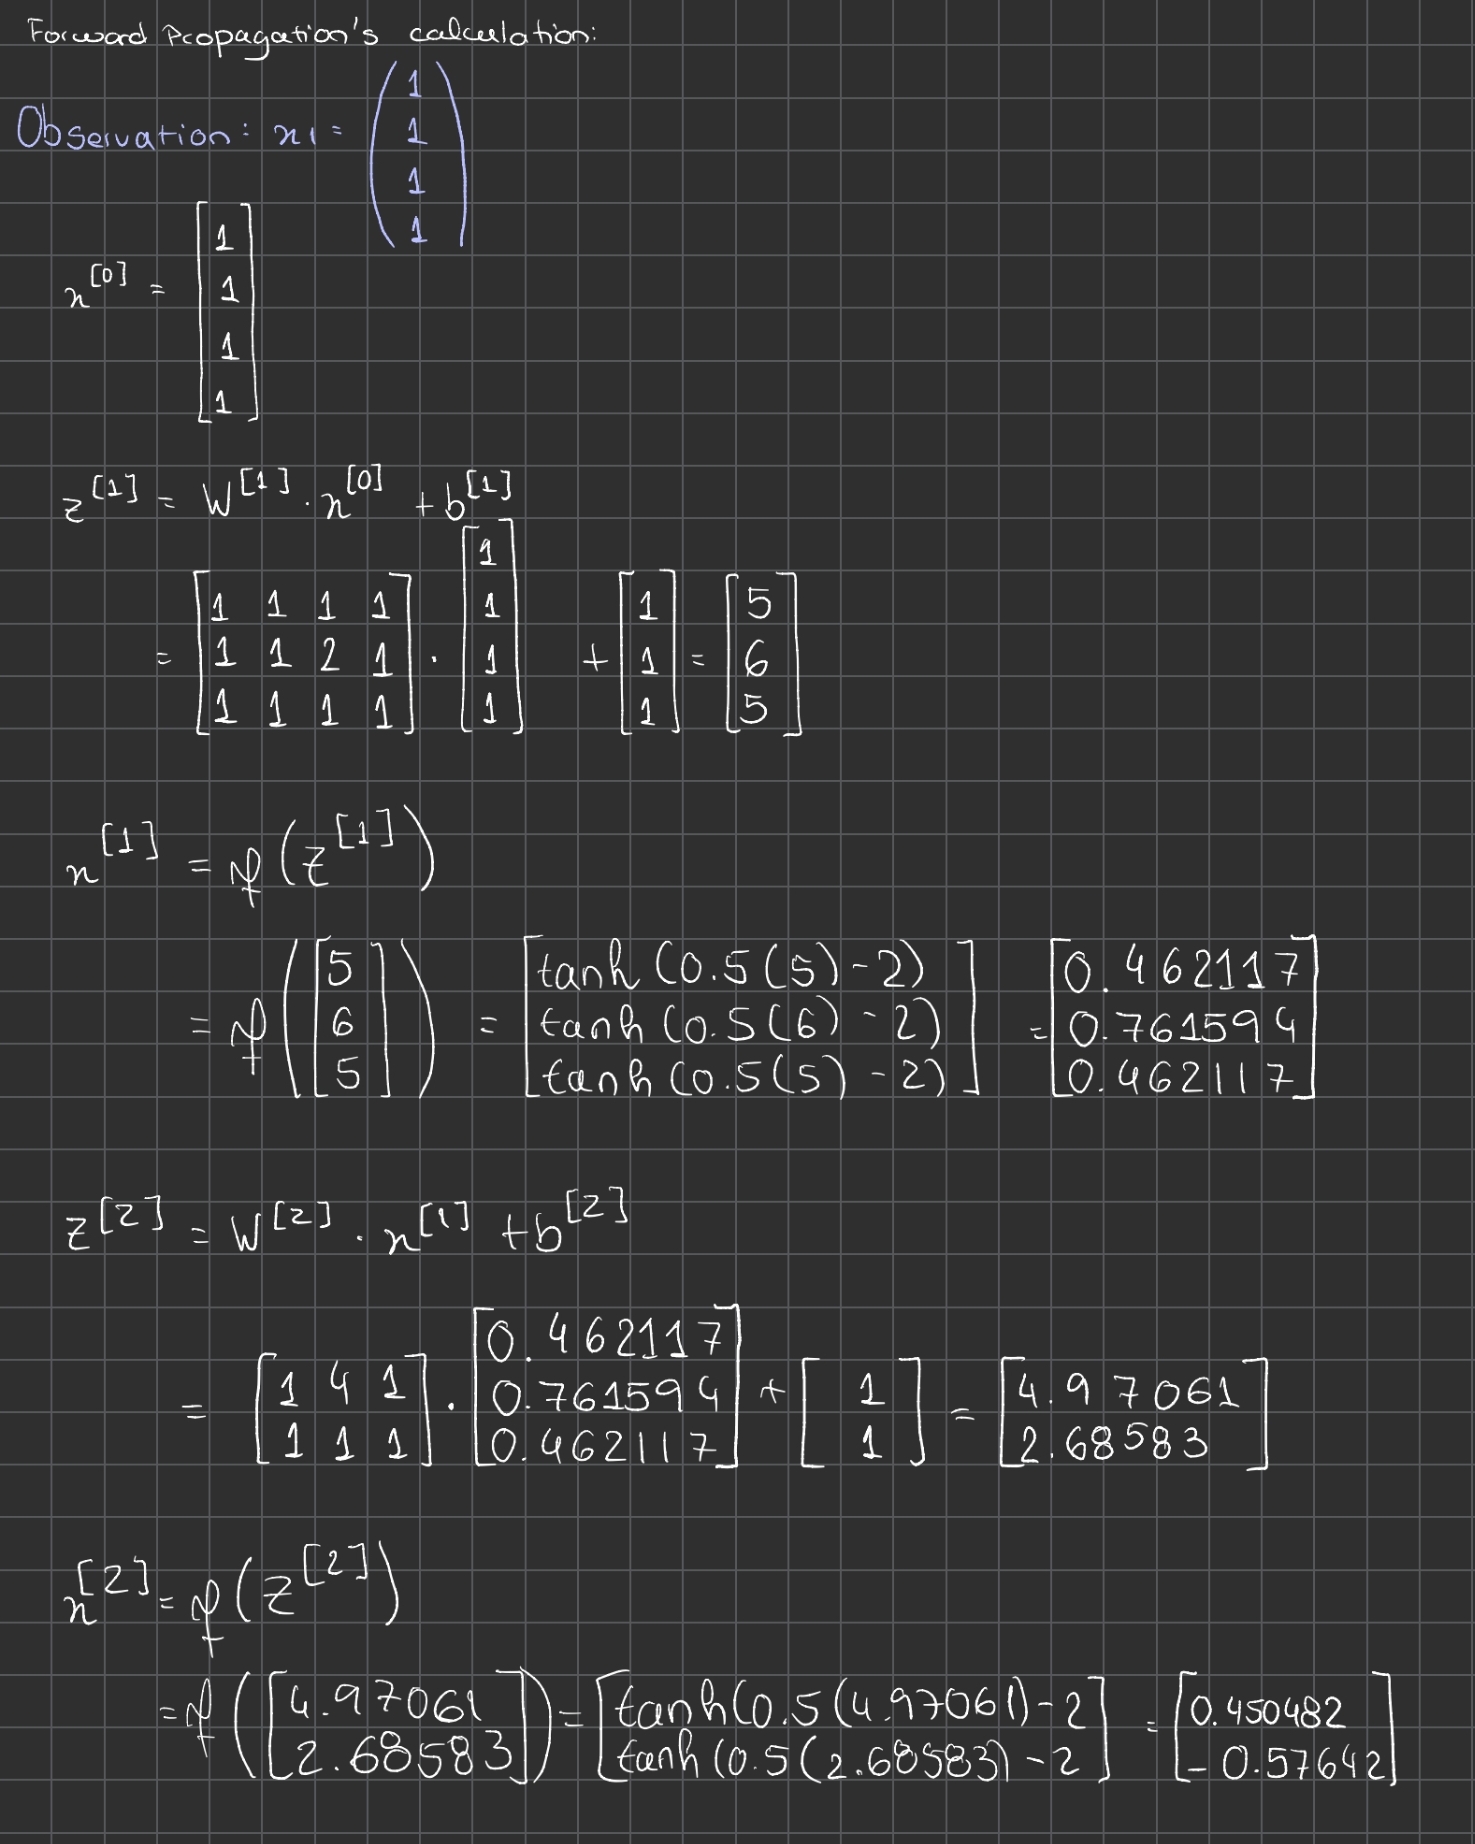 Forward Propagation's calculation:
Observation: x1 = (1 1 1 1)
x^[0] = [1 1 1 1]
z^[1] = W^[1] . x^[0] + b^[1]
= [1 1 1 1; 1 1 2 1; 1 1 1 1] . [1 1 1 1] + [1 1 1] = [5 6 5]
x^[1] = f(z^[1])
= f([5 6 5]) = [tanh(0.5(5)-2); tanh(0.5(6)-2); tanh(0.5(5)-2)] = [0.462117; 0.761594; 0.462117]
z^[2] = W^[2] . x^[1] + b^[2]
= [1 4 1; 1 1 1] . [0.462117; 0.761594; 0.462117] + [1 1] = [4.97061; 2.68583]
x^[2] = f(z^[2])
= f([4.97061; 2.68583]) = [tanh(0.5(4.97061)-2; tanh(0.5(2.68583)-2] = [0.450482; -0.57642]